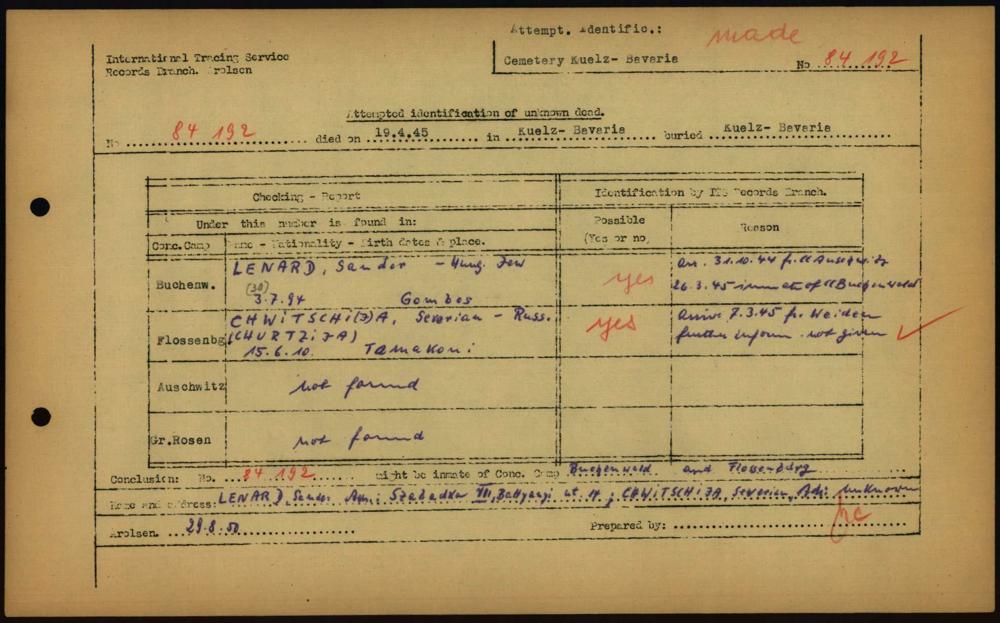 Attempt. Identific.: made
International Tracing Service
Records Branch. Arolsen
Cemetery Kuelz- Bavaria
No 84 192
Attempted identification of unknown dead.
No 84 192 died on 19.4.45 in Kuelz- Bavaria buried Kuelz- Bavaria
Checking - Report
Identification by ITS Records Branch.
Under this number is found in:
Possible
(Yes or no,
Reason
Conc.Camp
Name - Nationality - Birth dates & place.
Buchenw.
LENARD, Sandor - Hung. Jew
(30)
3.7.94 Gombos
yes
arr. 31.10.44 fr. CC Auschwitz
26.3.45 inmate of CC Buchenwald
Flossenbg
CHWITSCHI(J)A, Severian - Russ.
(CHURTZIJA)
15.6.10. Tamakoni
yes
arriv. 7.3.45 fr. Weiden
further inform. not given
Auschwitz
not found
Gr.Rosen
not found
Conclusion: No. 84 192 might be inmate of Conc. Camp Buchenwald and Flossenbürg
Name and address: LENARD, Sandor Szabadka VII, Battyanyi ut 14; CHWITSCHIJA, Severian, Adr. unknown
Arolsen. 29.8.50
Prepared by: